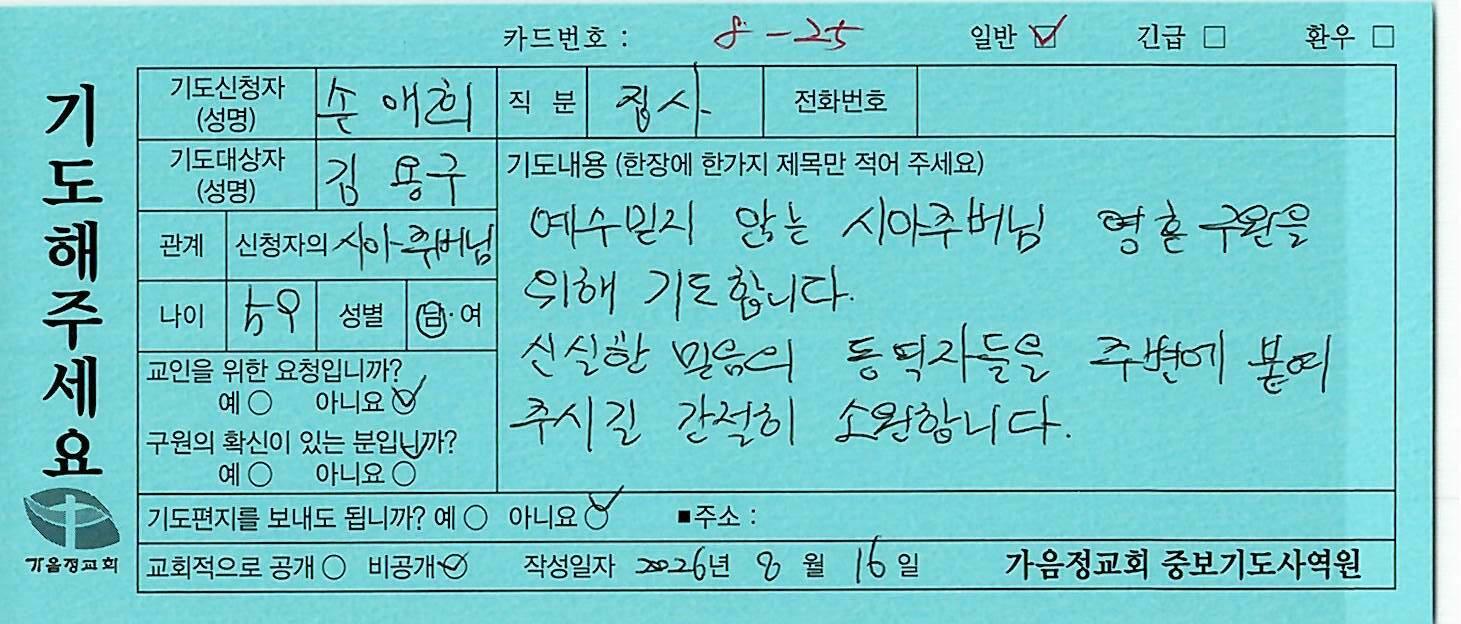 카드번호 : 8-25 일반 ☑ 긴급 □ 환우 □
기도해주세요
기도신청자 (성명) 손애희 직 분 집사 전화번호
기도대상자 (성명) 김용구
관계 신청자의 시아주버님
나이 성별 남·여
교인을 위한 요청입니까?
예 ○ 아니요 ○
구원의 확신이 있는 분입니까?
예 ○ 아니요 ○
기도내용 (한장에 한가지 제목만 적어 주세요)
예수믿지 않는 시아주버님 영혼구원을
위해 기도합니다.
신실한 믿음의 동역자들을 주변에 붙여
주시길 간절히 소원합니다.
기도편지를 보내도 됩니까? 예 ○ 아니요 ○ ■주소 :
교회적으로 공개 ○ 비공개 ○ 작성일자 2026년 8월 16일 가음정교회 중보기도사역원
가음정교회